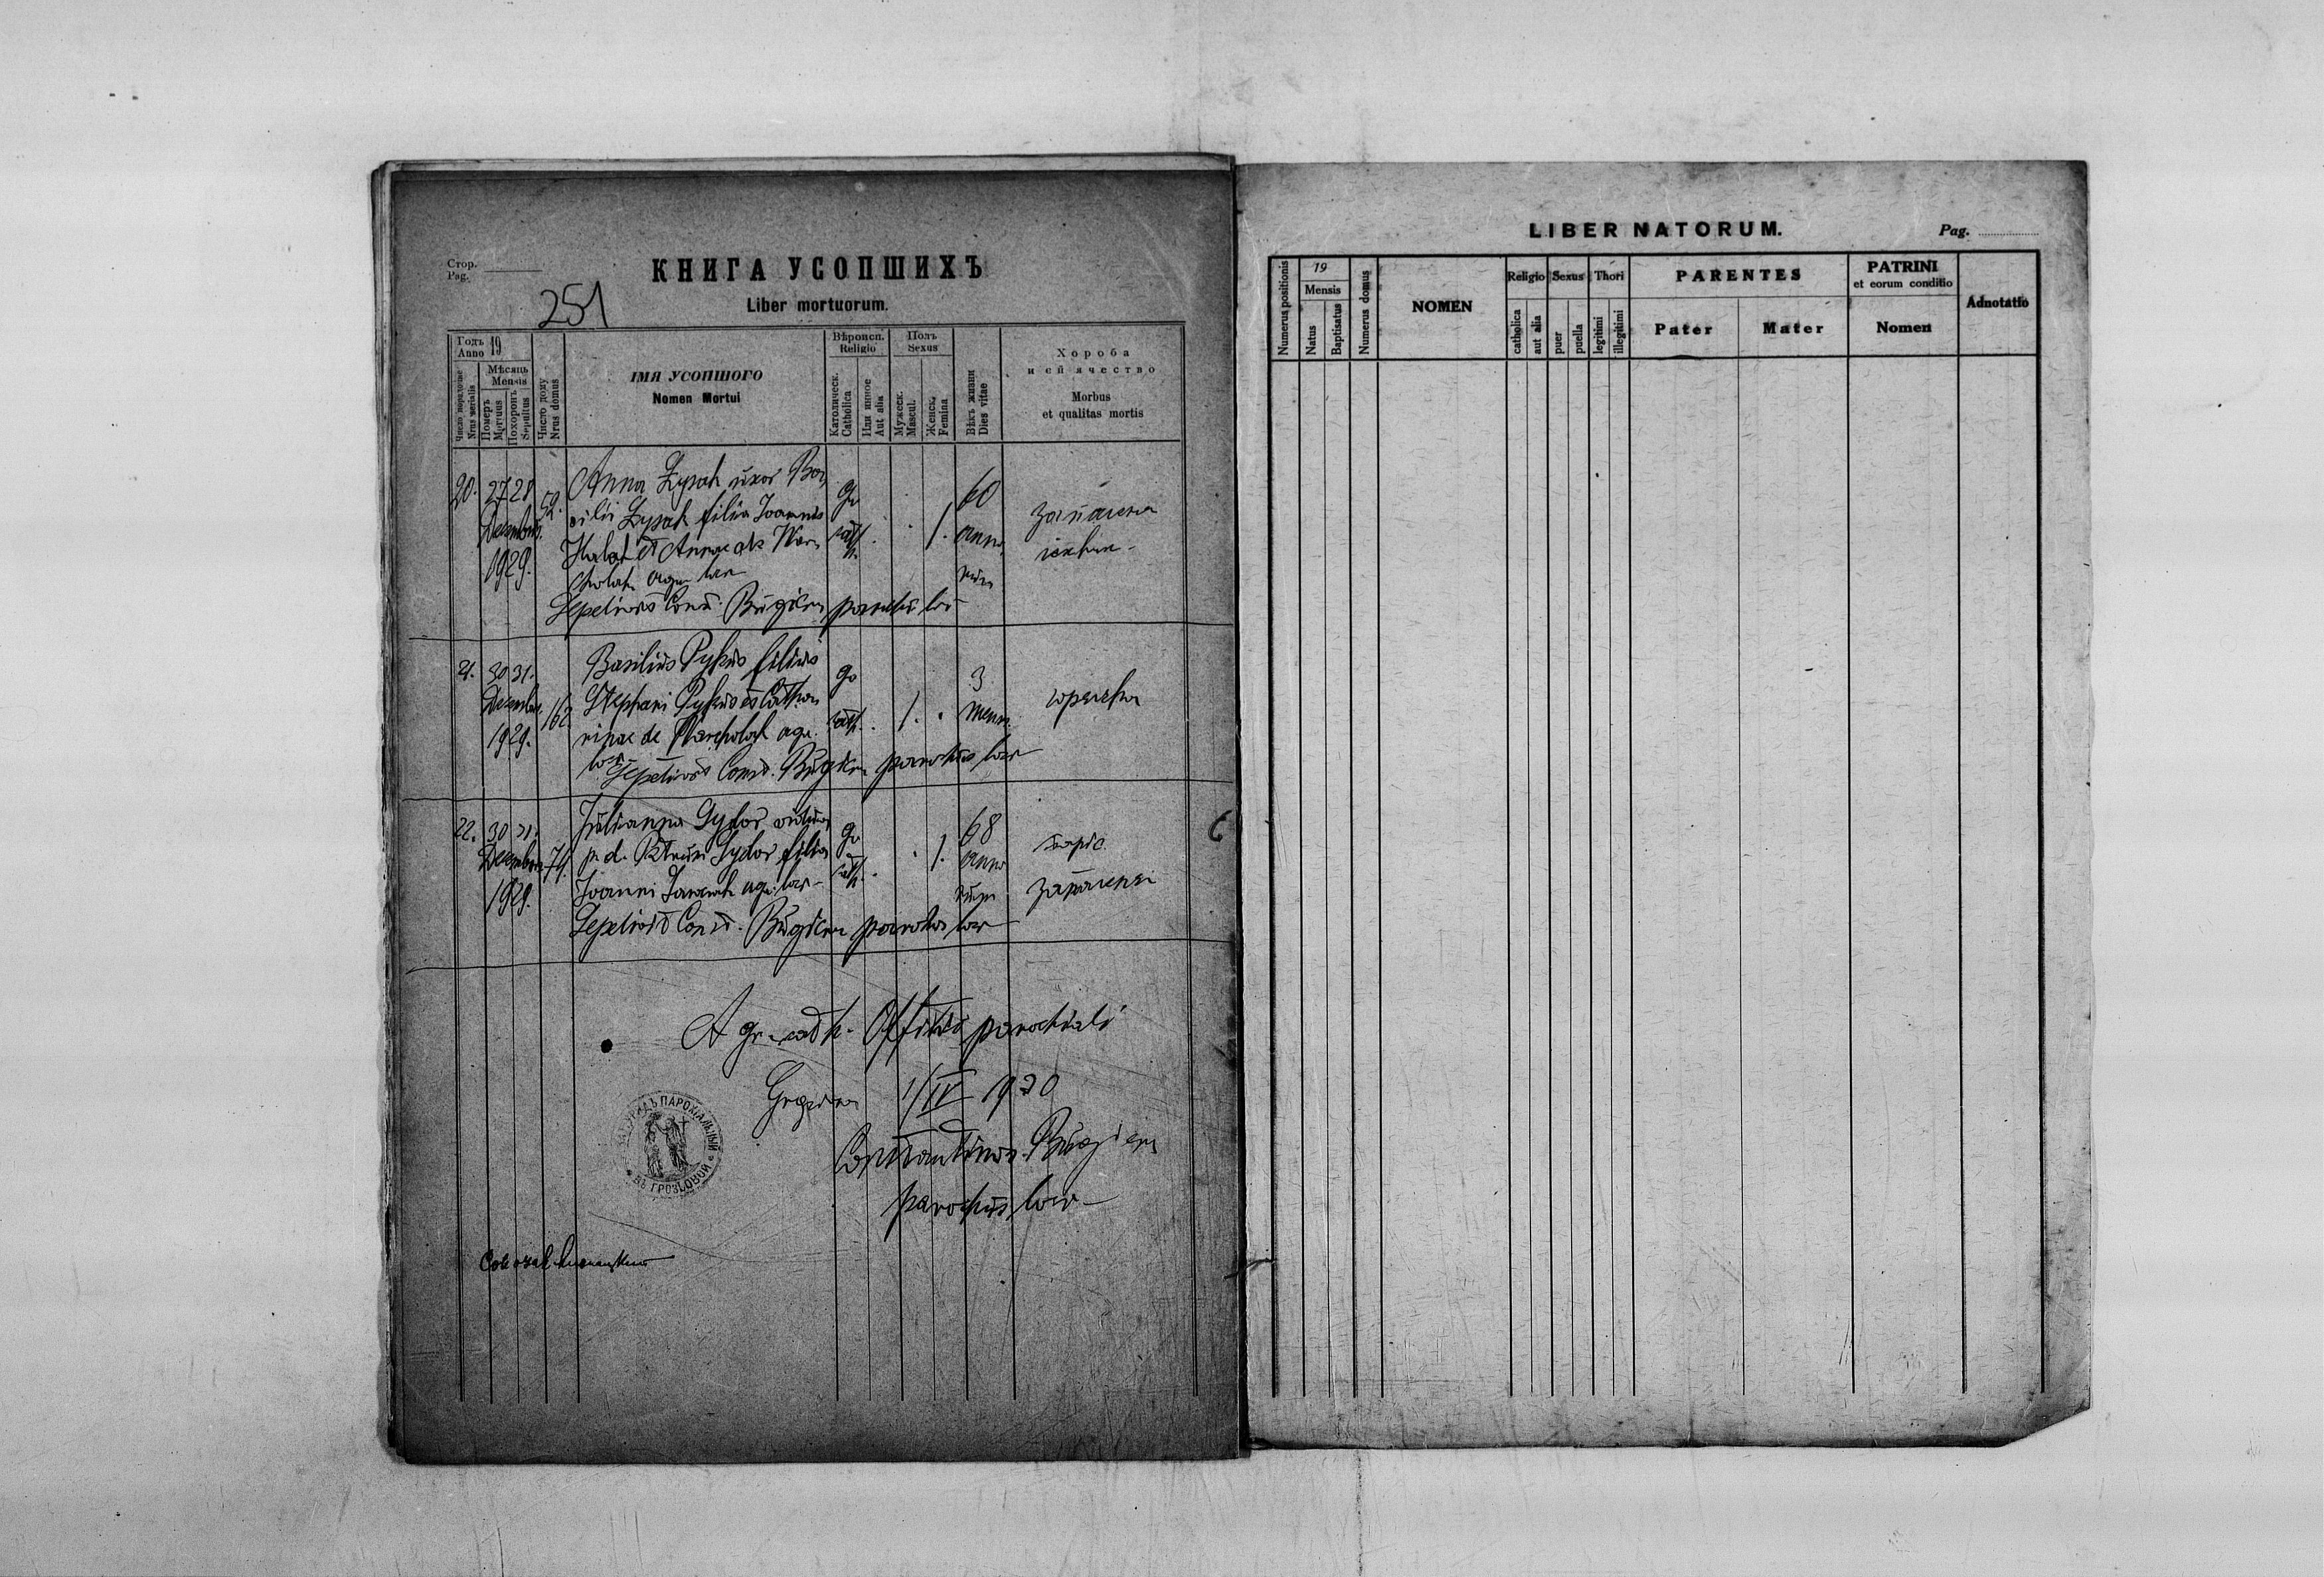 Стор.
Pag.
КНИГА УСОПШИХЪ
251
Liber mortuorum.
Годъ
Anno 19
Мѣсяцъ
Mensis
Число порядкове
Nrus serialis
Померъ
Mortuus
Похоронъ
Sepultus
Число дому
Nrus domus
ІМЯ УСОПШОГО
Nomen Mortui
Вѣроисп.
Religio
Католическ.
Catholica
Или инное
Aut alia
Полъ
Sexus
Мужеск.
Mascul.
Женск.
Femina
Вѣкъ жизни
Dies vitae
Хороба
и ей ячество
Morbus
et qualitas mortis
20. 27 28 52. Anna Łysak uxor Ba
silii Łysak filia Joannis
Decembris
et Annae de War
1929.
cholak agr. loc.
Gr
cath.
1.
60
anno
rum
Sepelivit Const. Bugiera parochus loci
21. 30 31. 162 Basilius Pykus filius
Decembris Stephani Pykus et Catha
1929. rinae de Warcholak agr.
loc.
gr
cath.
1.
3
mens.
Sepelivit Const. Bugiera parochus loci
22. 30 31. 74. Julianna Sydor vidua
Decembris p. d. Petrum Sydor filia
1929. Joanni agr. loc.
gr
cath.
1.
68
anno
rum
Sepelivit Const. Bugiera parochus loci
A gr. cath. Officio parochiali
1/IV 1930
Constantinus Bugiera
parochus loci
УРЯДЪ ПАРОХІАЛЬНЫЙ
ВЪ ГРОЗЬОВОЙ
LIBER NATORUM.
Pag.
Numerus positionis
19
Mensis
Natus
Baptisatus
Numerus domus
NOMEN
Religio
catholica
aut alia
Sexus
puer
puella
Thori
legitimi
illegitimi
PARENTES
Pater
Mater
PATRINI
et eorum conditio
Nomen
Adnotatio